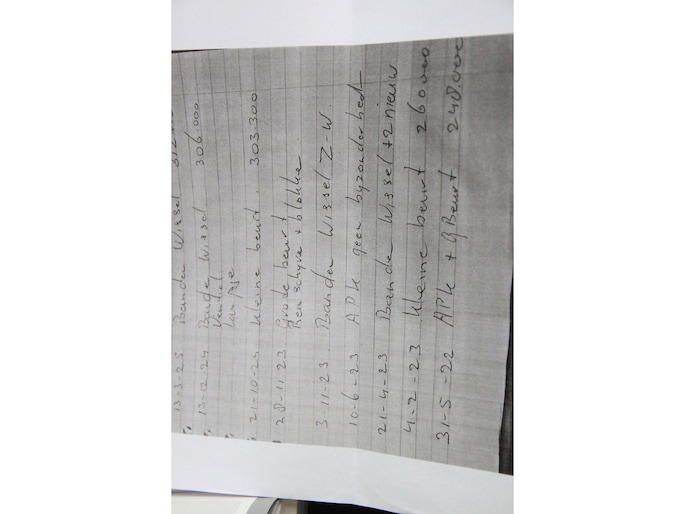 13-3-25 Banden Wissel
13-12-24 Bande Wissel 306000
Ventiel
Lampje
21-10-24 Kleine beurt. 303300
28-11-23. Grote beurt
Rem schyve + blokke.
3-11-23. Banden Wissel Z-W.
10-6-23 APK geen byzonderhedt
21-4-23 Bande Wissel +2 nieuw.
4-2-23 Kleine beurt 260000
31-5-22 APK + gBeurt 248.000